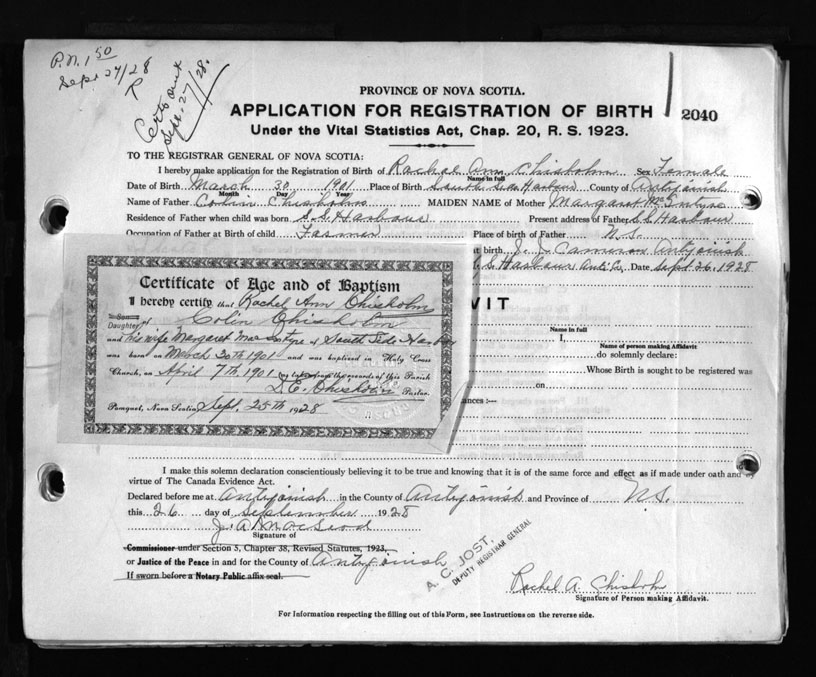 P.N. 1 50
Sept 27/28
R
Cert sent
Sept. 27/28.
PROVINCE OF NOVA SCOTIA.
APPLICATION FOR REGISTRATION OF BIRTH
2040
Under the Vital Statistics Act, Chap. 20, R. S. 1923.
TO THE REGISTRAR GENERAL OF NOVA SCOTIA:
I hereby make application for the Registration of Birth of Rachel Ann Chisholm Sex Female
Name in full
Date of Birth March 30 1901 Place of Birth South Side Harbour County of Antigonish
Month Day Year
Name of Father Colin Chisholm MAIDEN NAME of Mother Margaret McIntyre
Residence of Father when child was born S.S. Harbour Present address of Father S.S. Harbour
Occupation of Father at Birth of child Farmer Place of birth of Father N.S.
at birth J. J. Cameron Antigonish
S. S. Harbour Anti. Co. Date Sept 26, 1928
VIT
Name in full
I,
Name of person making Affidavit
do solemnly declare:
Whose Birth is sought to be registered was
on
ances :—
Certificate of Age and of Baptism
I hereby certify that Rachel Ann Chisholm
Son
Daughter of Colin Chisholm
and his wife Margaret MacIntyre of South Side Harbor
was born on March 30th 1901 and was baptized in Holy Cross
Church, on April 7th 1901 the records of this Parish
D. E. Chisholm Pastor.
Pomquet, Nova Scotia Sept. 25th 1928
I make this solemn declaration conscientiously believing it to be true and knowing that it is of the same force and effect as if made under oath and by
virtue of The Canada Evidence Act.
Declared before me at Antigonish in the County of Antigonish and Province of N.S.
this 26 day of September 1928
J. A. MacLeod
Signature of
Commissioner under Section 5, Chapter 38, Revised Statutes, 1923,
or Justice of the Peace in and for the County of Antigonish
If sworn before a Notary Public affix seal.
A. C. JOST,
DEPUTY REGISTRAR GENERAL
Rachel A. Chisholm
Signature of Person making Affidavit.
For Information respecting the filling out of this Form, see Instructions on the reverse side.